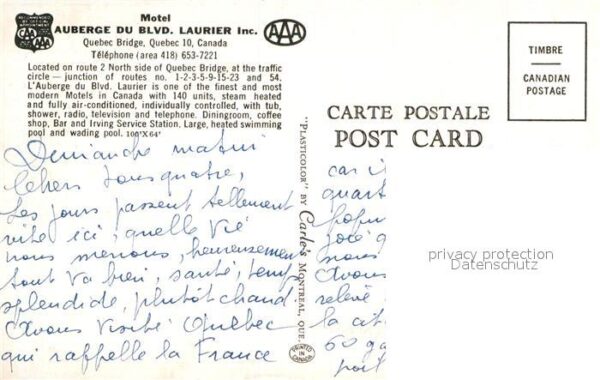 RECOMMENDED BY OFFICIAL APPOINTMENT
Motel
AUBERGE DU BLVD. LAURIER Inc.
AAA
Quebec Bridge, Quebec 10, Canada
Téléphone (area 418) 653-7221
Located on route 2 North side of Quebec Bridge, at the traffic
circle — junction of routes no. 1-2-3-5-9-15-23 and 54.
L'Auberge du Blvd. Laurier is one of the finest and most
modern Motels in Canada with 140 units, steam heated
and fully air-conditioned, individually controlled, with tub,
shower, radio, television and telephone. Diningroom, coffee
shop, Bar and Irving Service Station. Large, heated swimming
pool and wading pool. 100'X64'
TIMBRE
CANADIAN
POSTAGE
CARTE POSTALE
POST CARD
Dimanche matin
Chers tous quatre,
Les jours passent tellement
vite ici, quelle vie
nous menons, heureusement
tout va bien, santé, temps
splendide, plutôt chaud
Avons visité Québec
qui rappelle la France
"PLASTICOLOR" BY Carle's MONTREAL, QUE.
PRINTED IN CANADA
car i
quart
popu
nous
Avons
relevé
la cit
60
privacy protection
Datenschutz